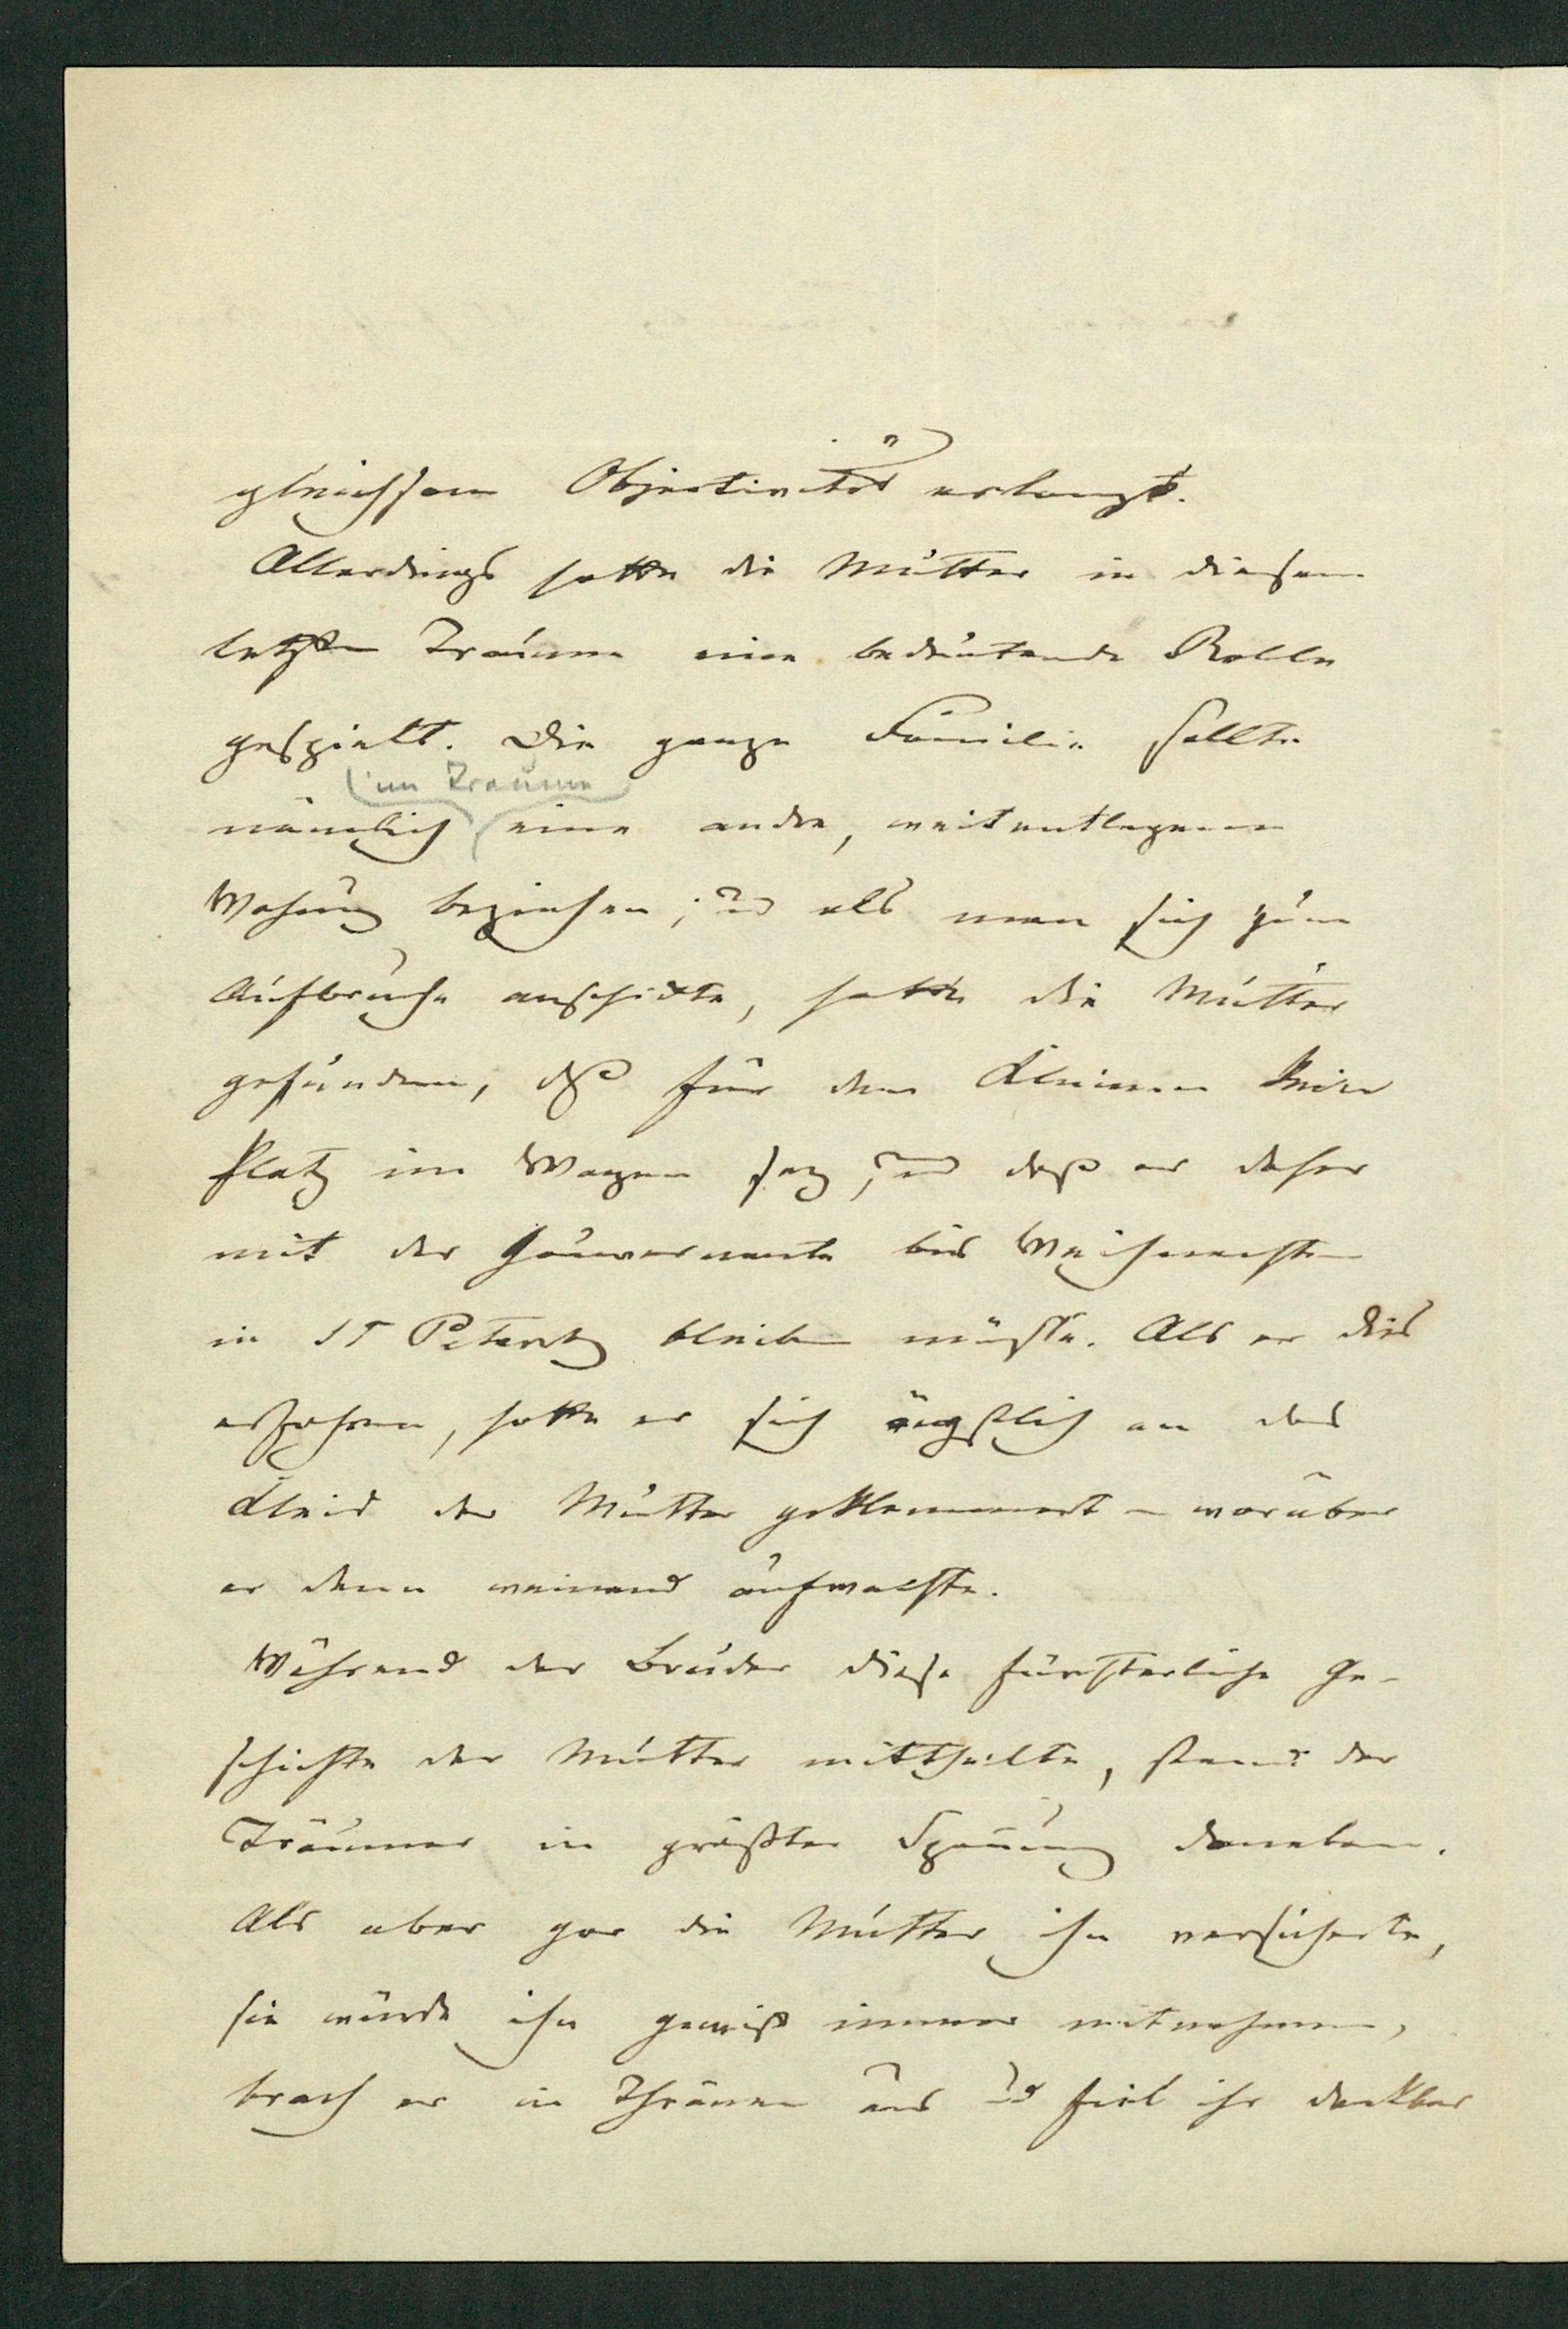 gleichsam Objectivität erlangt.
Allerdings hatte die Mutter in diesem
letzten Traume eine bedeutende Rolle
gespielt. Die ganze Familie sollte
im Traume
nämlich eine andre, weitentlegene
Wohnung beziehen; und als man sich zum
Aufbruche anschickte, hatte die Mutter
gefunden, dß für den Kleinen kein
Platz im Wagen sey, und daß er daher
mit der Gouvernante bis Weihnachten
in St Petersbg bleiben müsste. Als er dies
erfahren, hatte er sich ängstlich an das
Kleid der Mutter geklammert – worüber
er denn weinend aufwachte.
Während der Bruder diese fürchterliche Ge-
schichte der Mutter mittheilte, stand der
Träumer in größter Spannung daneben.
Als aber gar die Mutter ihn versicherte,
sie würde ihn gewiß immer mitnehmen,
brach er in Thränen aus und fiel ihr dankbar